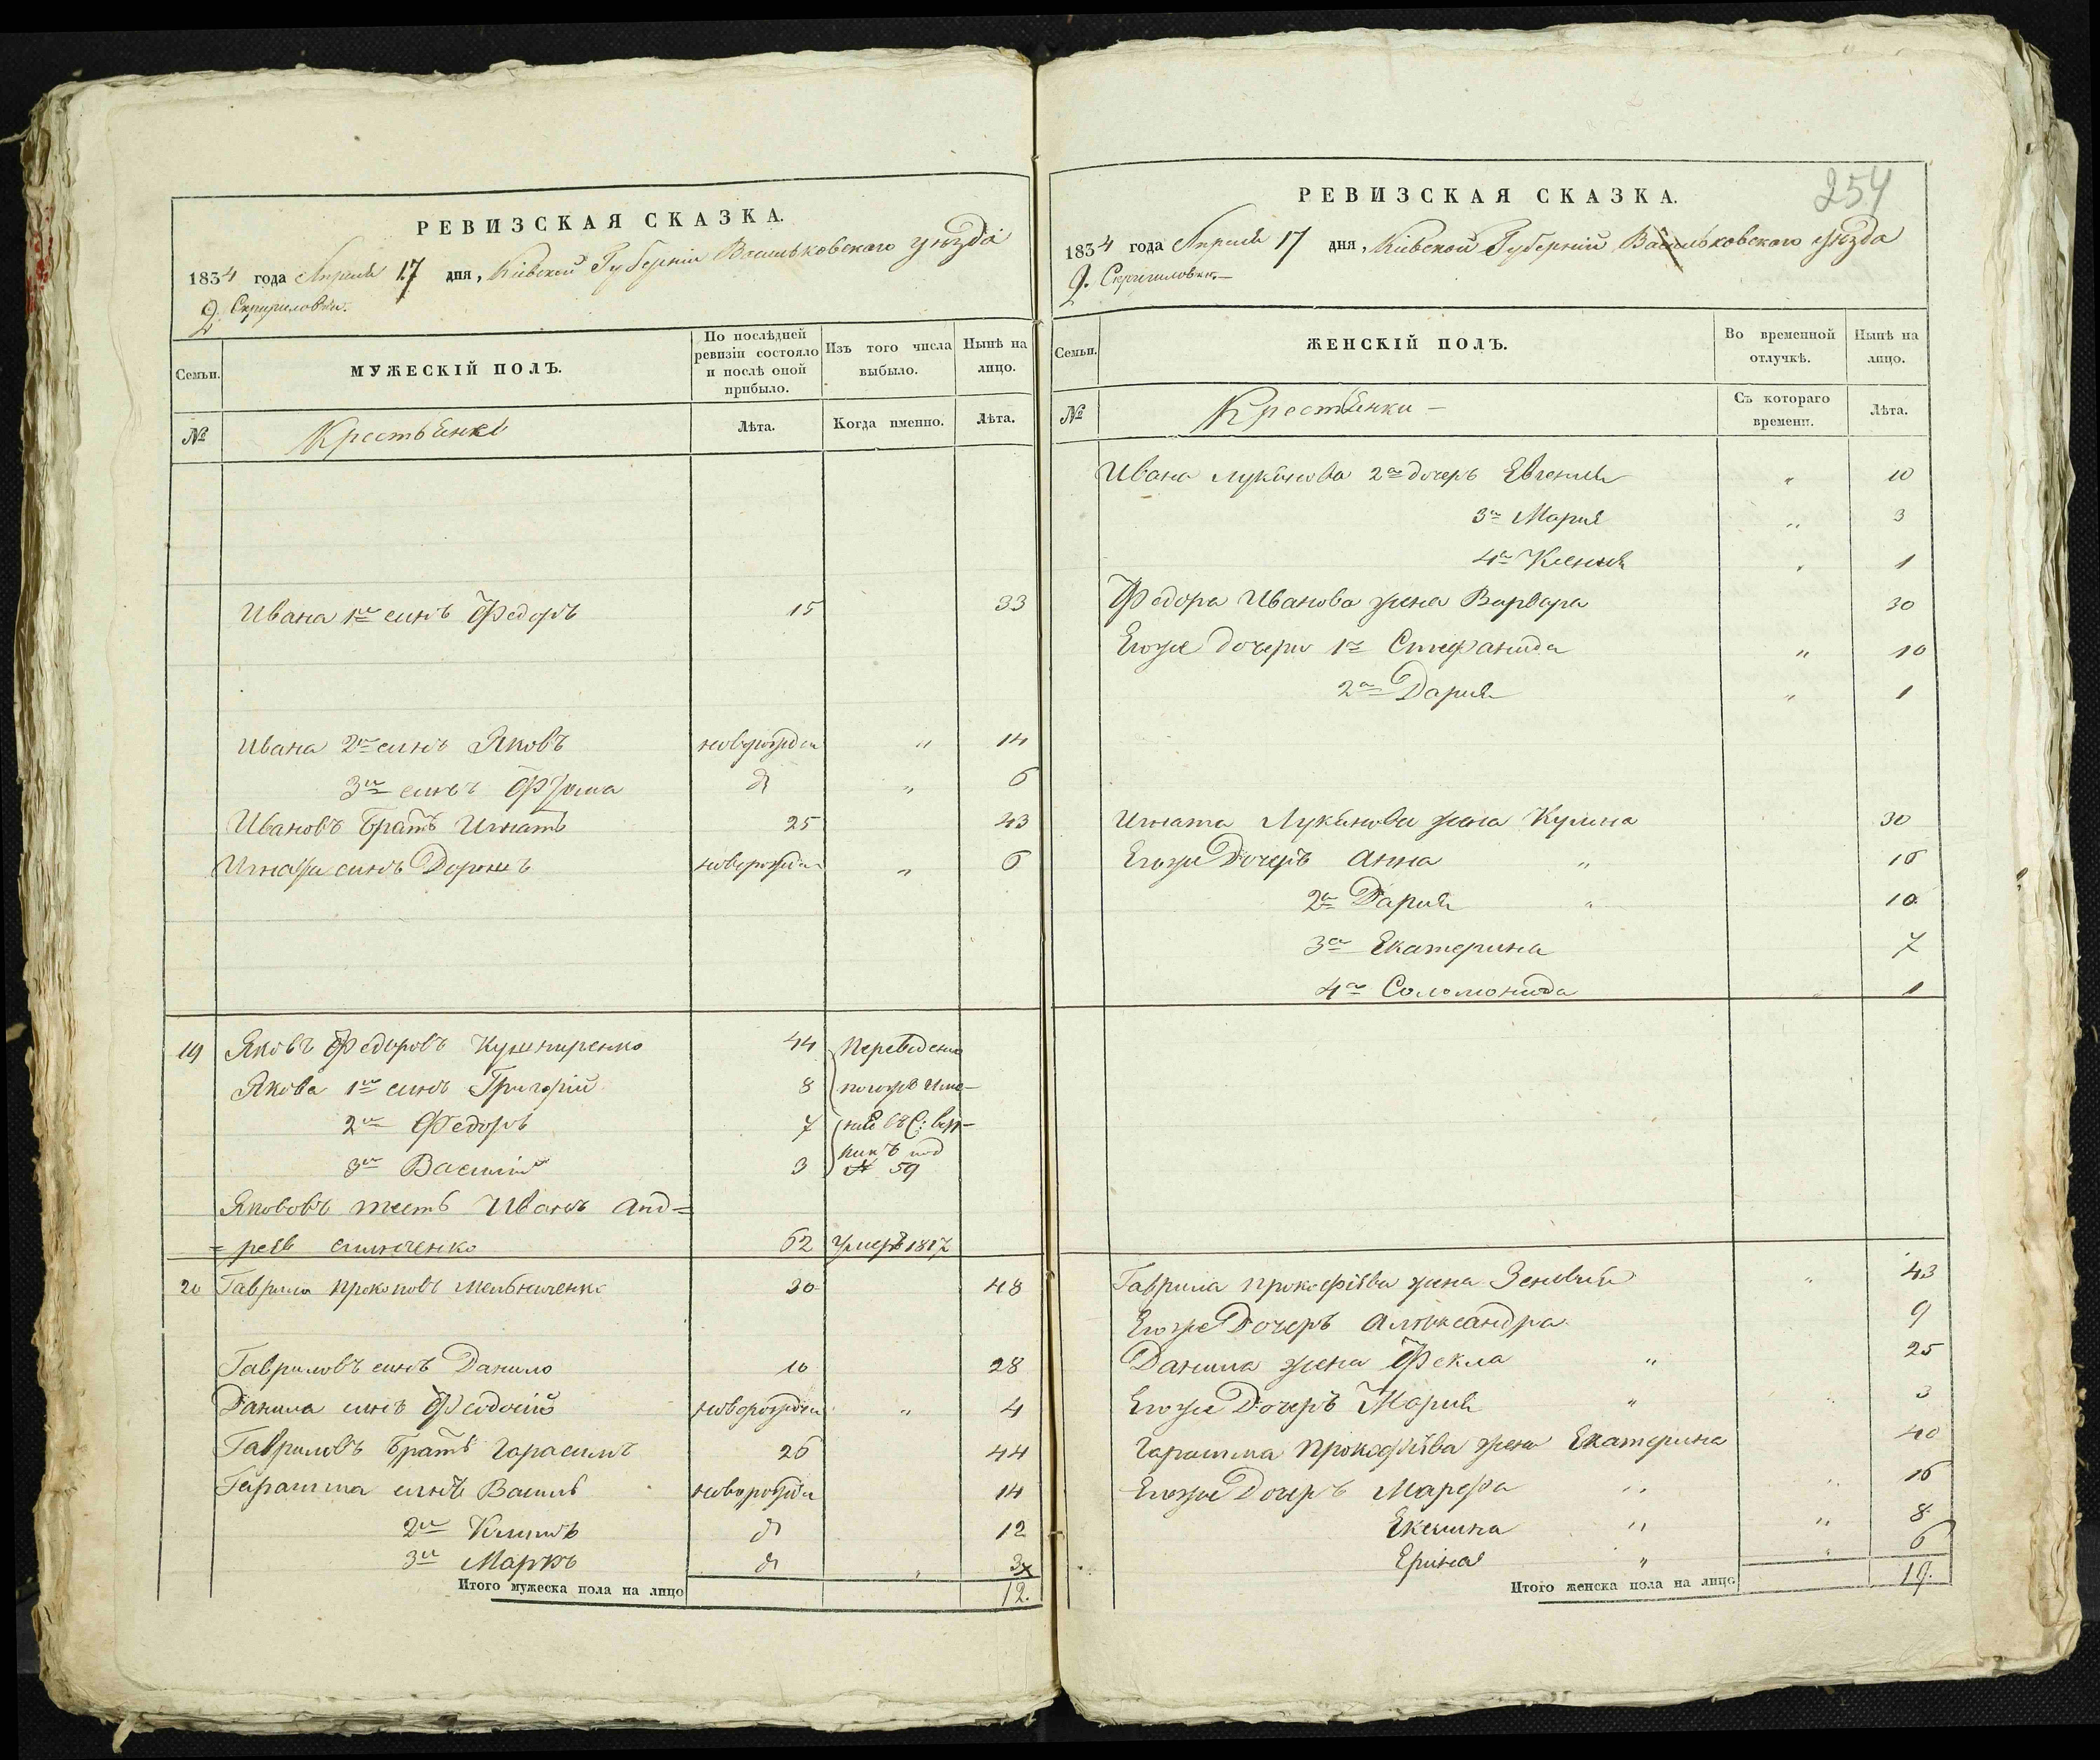 РЕВИЗСКАЯ СКАЗКА.
1834 года Апреля 17 дня, Кіевской Губерніи Васильковскаго уѣзда
Д. Скригиловки.
Семьи.
МУЖЕСКІЙ ПОЛЪ.
По послѣдней ревизіи состояло и послѣ оной прибыло.
Изъ того числа выбыло.
Нынѣ на лицо.
№
Крестьяне
Лѣта.
Когда именно.
Лѣта.
Ивана 1й синъ Федоръ 15 33
Ивана 2й синъ Яковъ новорожден " 14
3й синъ Фома д " 6
Ивановъ братъ Игнатъ 25 43
Игната синъ Дорошъ новорожден " 6
19 Яковъ Федоровъ Кушниренко 44 Переведены
Якова 1й синъ Григорій 8 тогоже име-
2й Федоръ 7 ния въ С:
3й Василій 3 под № 59
Якововъ тесть Иванъ Анд=
=реев 62 умеръ 1817
20 Гаврило Прокоповъ Мельниченко 30 48
Гавриловъ синъ Данило 10 28
Данила синъ Феодосій новорожден " 4
Гавриловъ братъ Гарасимъ 26 44
Гарасима синъ Василь новорожден 14
2й Климъ д 12
3й Марко д " 3
Итого мужеска пола на лицо 12.
254
РЕВИЗСКАЯ СКАЗКА.
1834 года Апреля 17 дня, Кіевской Губерніи Васильковскаго уѣзда
Д. Скригиловки.
Семьи.
ЖЕНСКІЙ ПОЛЪ.
Во временной отлучкѣ.
Нынѣ на лицо.
№
Крестьянки
Съ котораго времени.
Лѣта.
Ивана Лукянова 2я дочерь Евгения " 10
3я Мария " 3
4я Ксения " 1
Федора Иванова жена Варвара 30
Егоже дочери 1я Стефанида " 10
2я Дария " 1
Игната Лукянова жена Кулина 30
Егоже Дочерь Анна " 16
2я Дария " 10
3я Екатерина 7
4я Соломонида " 1
Гаврила Прокофѣева жена Зеновия " 43
Егоже Дочерь Александра 9
Данила жена Фекла " 25
Егоже Дочерь Мария " 3
Гарасима Прокофѣева жена Екатерина 40
Егоже Дочерь Марефа " 16
Екилина " 8
Ерина " 6
Итого женска пола на лицо 19.